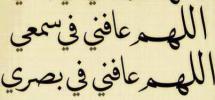 اللهم عافني في سمعي
اللهم عافني في بصري